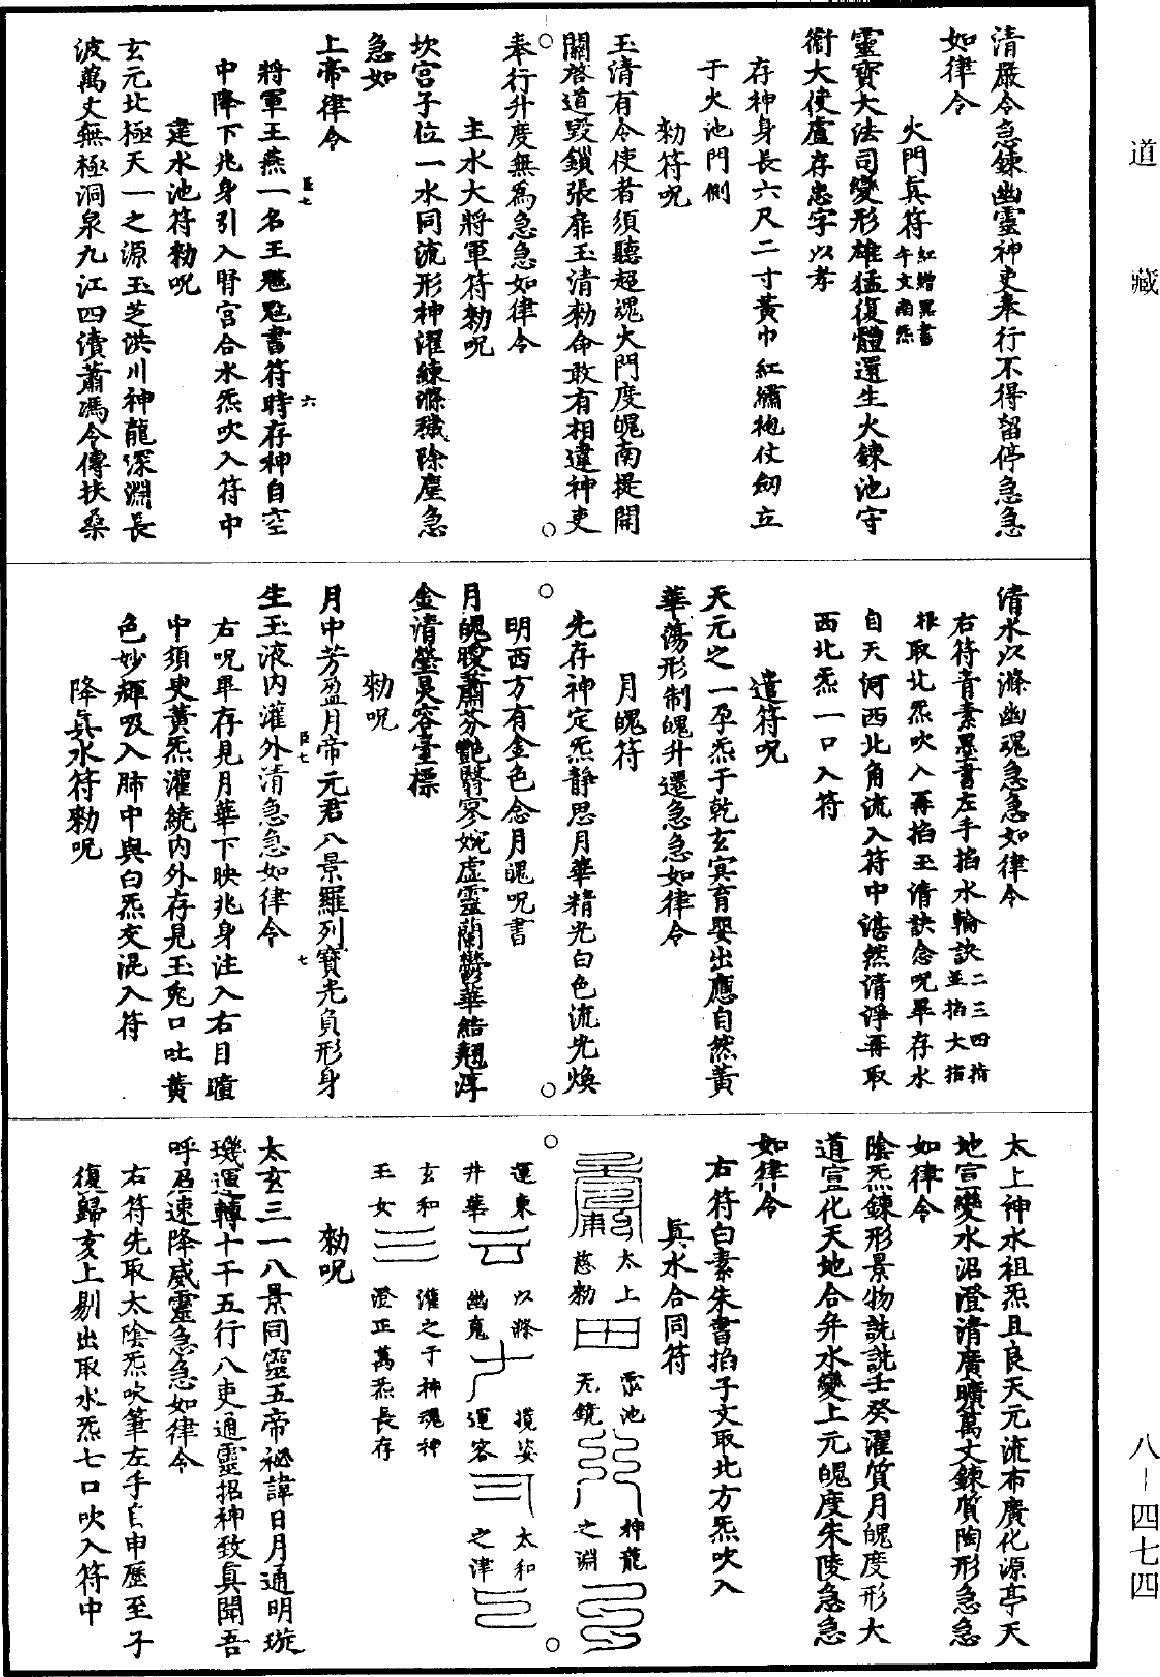 道藏
清嚴令急鍊幽靈神吏奉行不得留停急急
如律令
火門真符
紅繒黑書
午文南炁
靈寶大法司變形雄猛復體還生火鍊池守
衛大使盧存忠字以孝
存神身長六尺二寸黃巾紅繡袍仗劒立
于火池門側
勑符呪
玉清有令使者須聽超魂火門度魄南提開
關啓道毀鎖張扉玉清勑命敢有相違神吏
奉行升度無為急急如律令
主水大將軍符勑呪
坎宮子位一水同流形神濯練滌穢除塵急
急如
上帝律令
將軍王燕一名王魒魒書符時存神自空
中降下兆身引入腎宮合水炁吹入符中
建水池符勑呪
玄元北極天一之源玉芝洪川神龍深淵長
波萬丈無極洞泉九江四瀆蕭馮令傳扶桑
清水以滌幽魂急急如律令
右符青素墨書左手掐水輪訣二三四指
至掐大指
根取北炁吹入再掐玉清訣念呪畢存水
自天河西北角流入符中湛然清淨再取
西北炁一口入符
遣符呪
天元之一孕炁于乾玄冥育嬰出應自然黃
華蕩形制魄升遷急急如律令
月魄符
先存神定炁靜思月華精光白色流光煥
明西方有金色念月魄呪書
月魄曖蕭芬艶翳寥婉虛靈蘭鬱華結翹淳
金清瑩炅容臺標
勑呪
月中芳盈月帝元君八景羅列寶光負形身
生玉液內灌外清急急如律令
右呪畢存見月華下映兆身注入右目瞳
中須臾黃炁灌繞內外存見玉兔口吐黃
色妙輝吸入肺中與白炁交混入符
降真水符勑呪
太上神水祖炁且良天元流布廣化源亭天
地宣變水沼澄清廣曠萬丈鍊質陶形急急
如律令
陰炁鍊形景物詵詵壬癸濯質月魄度形大
道宣化天地合弁水變上元魄度朱陵急急
如律令
右符白素朱書掐子文取北方炁吹入
真水合同符
太上
慈勑
靈池
无鏡
神龍
之淵
運東
井華
以滌
幽鬼
攬姿
運容
太和
之津
玄和
玉女
灌之于神魂神
澄正萬炁長存
勑呪
太玄三一八景同靈五帝祕諱日月通明璇
璣運轉十干五行八吏通靈招神致真聞吾
呼召速降威靈急急如律令
右符先取太陰炁吹筆左手自申歷至子
復歸亥上剔出取水炁七口吹入符中
八-四七四